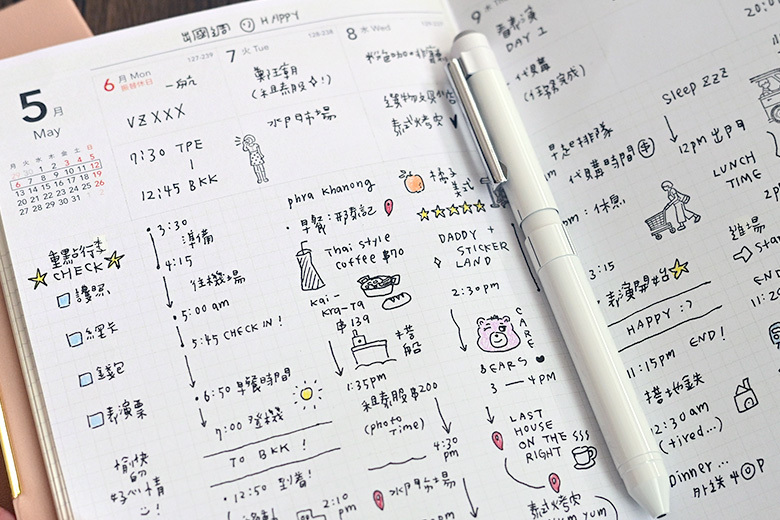 出國週 HAPPY
5月
May
月 火 水 木 金 土 日
1 2 3 4 5
6 7 8 9 10 11 12
13 14 15 16 17 18 19
20 21 22 23 24 25 26
27 28 29 30 31
重點行李
CHECK
護照
網卡
錢包
表演票
愉快
的
好心情
6 月 Mon
振替休日
127-239
VZXXX
7:30 TPE
12:45 BKK
3:30
準備
4:15
往機場
5:00 am
5:45 CHECK IN!
6:50 早餐時間
7:00 登機
TO BKK!
12:50 到着!
2:10
pm
7 火 Tue
128-238
鄭王廟
(租泰服!)
水門市場
phra khanong
早餐:
Thai style
coffee $70
kai-
kra-ta
$139
搭
船
1:35pm
租泰服$200
(photo
time)
4:30
pm
水門市場
8 水 Wed
泰式烤肉
橘子
美式
DADDY +
STICKER
LAND
2:30 pm
CARE
BEARS
3 — 4PM
LAST
HOUSE
ON THE
RIGHT
泰式烤肉
Yum Yum
9 木
看表演
DAY 1
代購
(任務完成)
早起排隊
代購時間
pm: 休息
3:15
表演開始
HAPPY :)
END!
11:15pm
搭地鐵
12:30am
(tired...)
Dinner...
sleep zzz
12pm 出門
LUNCH
TIME